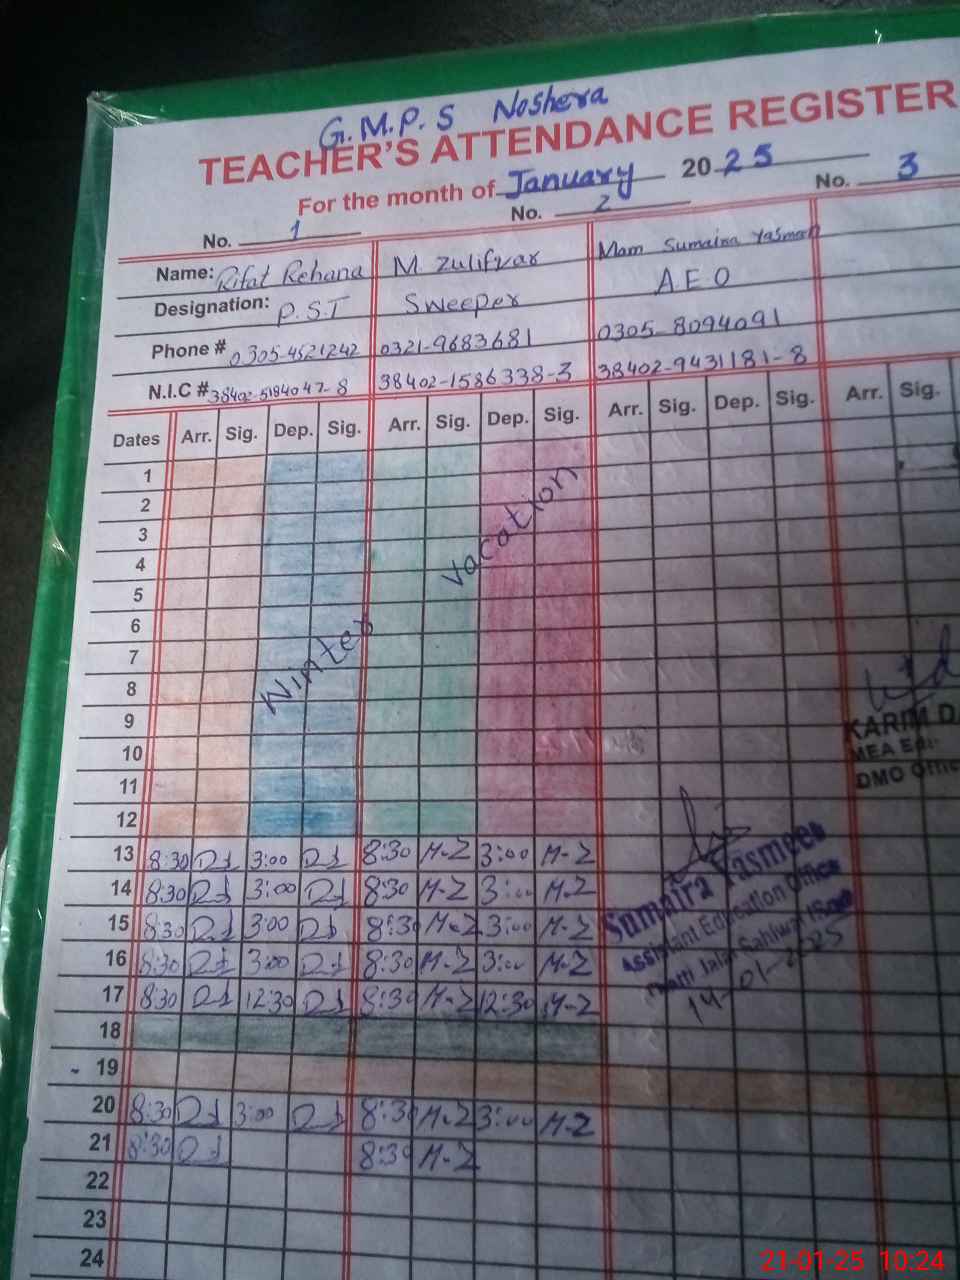 G.M.P.S Noshera
TEACHER'S ATTENDANCE REGISTER
For the month of January 2025
No. 1 No. 2 No. 3
Name: Rifat Rehana M Zulifqar Mam Sumaira Yasmeen
Designation: P.S.T Sweeper A.E.O
Phone # 0305-4521242 0321-9683681 0305-8094091
N.I.C # 38402-5184047-8 38402-1586338-3 38402-9431181-8
Dates Arr. Sig. Dep. Sig. Arr. Sig. Dep. Sig. Arr. Sig. Dep. Sig. Arr. Sig.
1
2
3
4
5
6
7
8
9
10
11
12
Winter Vacation
KARIM D
MEA
DMO Office
13 8:30 3:00 8:30 M-Z 3:00 M-Z
14 8:30 3:00 8:30 M-Z 3:00 M-Z
15 8:30 3:00 8:30 M-Z 3:00 M-Z
16 8:30 3:00 8:30 M-Z 3:00 M-Z
17 8:30 12:30 8:30 M-Z 12:30 M-Z
Sumaira Yasmeen
Assistant Education Office
14-01-2025
18
19
20 8:30 3:00 8:30 M-Z 3:00 M-Z
21 8:30 8:30 M-Z
22
23
24
21-01-25 10:24